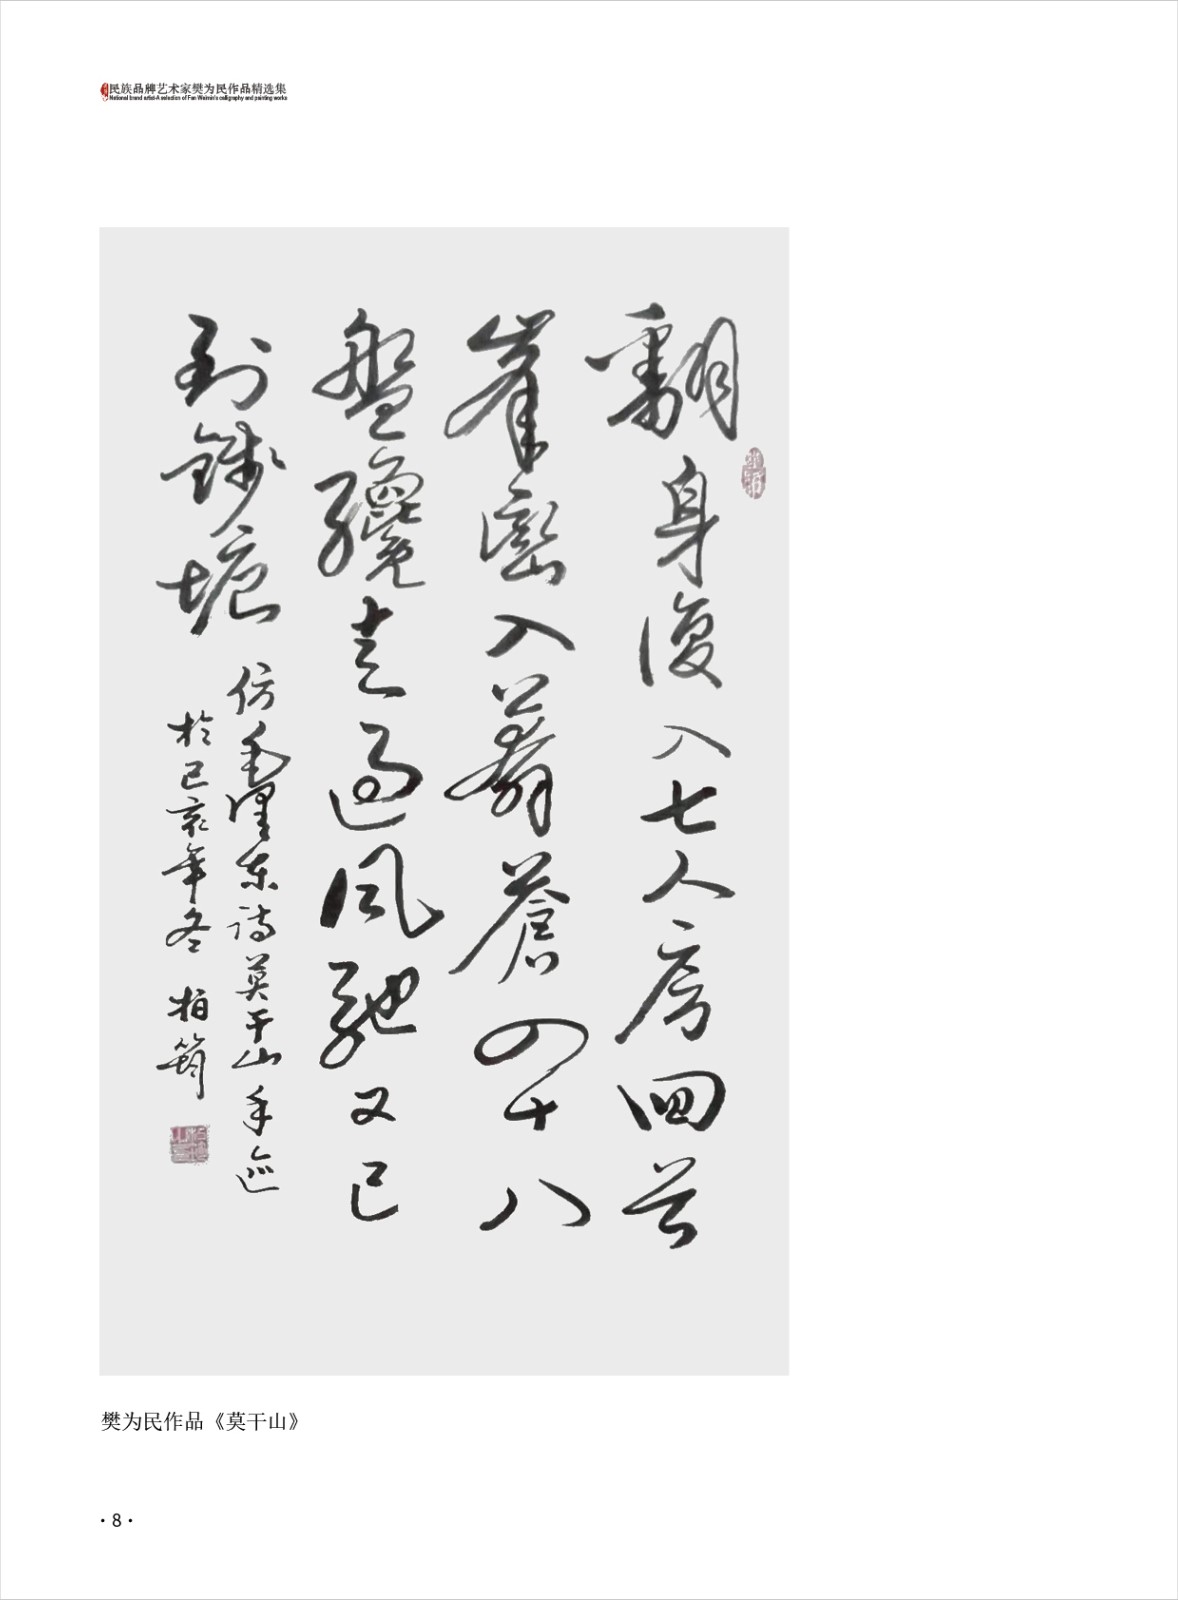 民族品牌艺术家樊为民作品精选集
National brand artist-A selection of Fan Weimin's calligraphy and painting works
翻身復入七人房囬首
峯巒入莽蒼四十八
盤纔走過風馳又已
到錢塘
仿毛澤東詩莫干山手迹
於己亥年冬 柏筠
樊为民作品《莫干山》
·8·